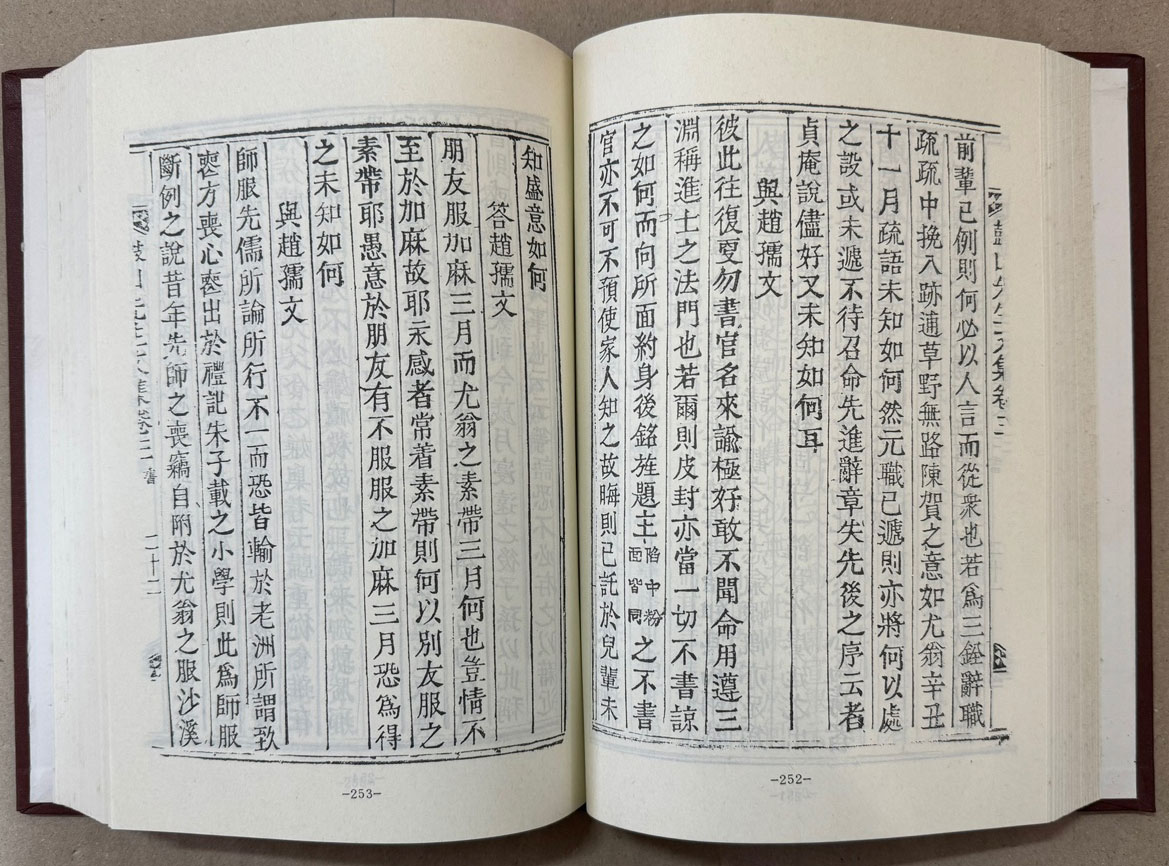 前輩已例則何必以人言而從衆也若爲三銓辭職
疏疏中挽入跡逋草野無路陳賀之意如尤翁辛丑
十一月疏語未知如何然元職已遞則亦將何以處
之設或未遞不待召命先進辭章失先後之序云者
貞庵說儘好又未知如何耳
與趙孺文
彼此往復更勿書官名來諭極好敢不聞命用遵三
淵稱進士之法門也若爾則皮封亦當一切不書諒
之如何而向所面約身後銘旌題主陷中粉面皆同之不書
官亦不可不預使家人知之故晦則已託於兒輩未
-252-
知盛意如何
答趙孺文
朋友服加麻三月而尤翁之素帶三月何也豈情不
至於加麻故耶永感者常着素帶則何以別友服之
素帶耶愚意於朋友有不服服之加麻三月恐爲得
之未知如何
與趙孺文
師服先儒所論所行不一而恐皆輸於老洲所謂致
喪方喪心喪出於禮記朱子載之小學則此爲師服
斷例之說昔年先師之喪竊自附於尤翁之服沙溪
鼓山先生文集卷三 書 二十二
-253-